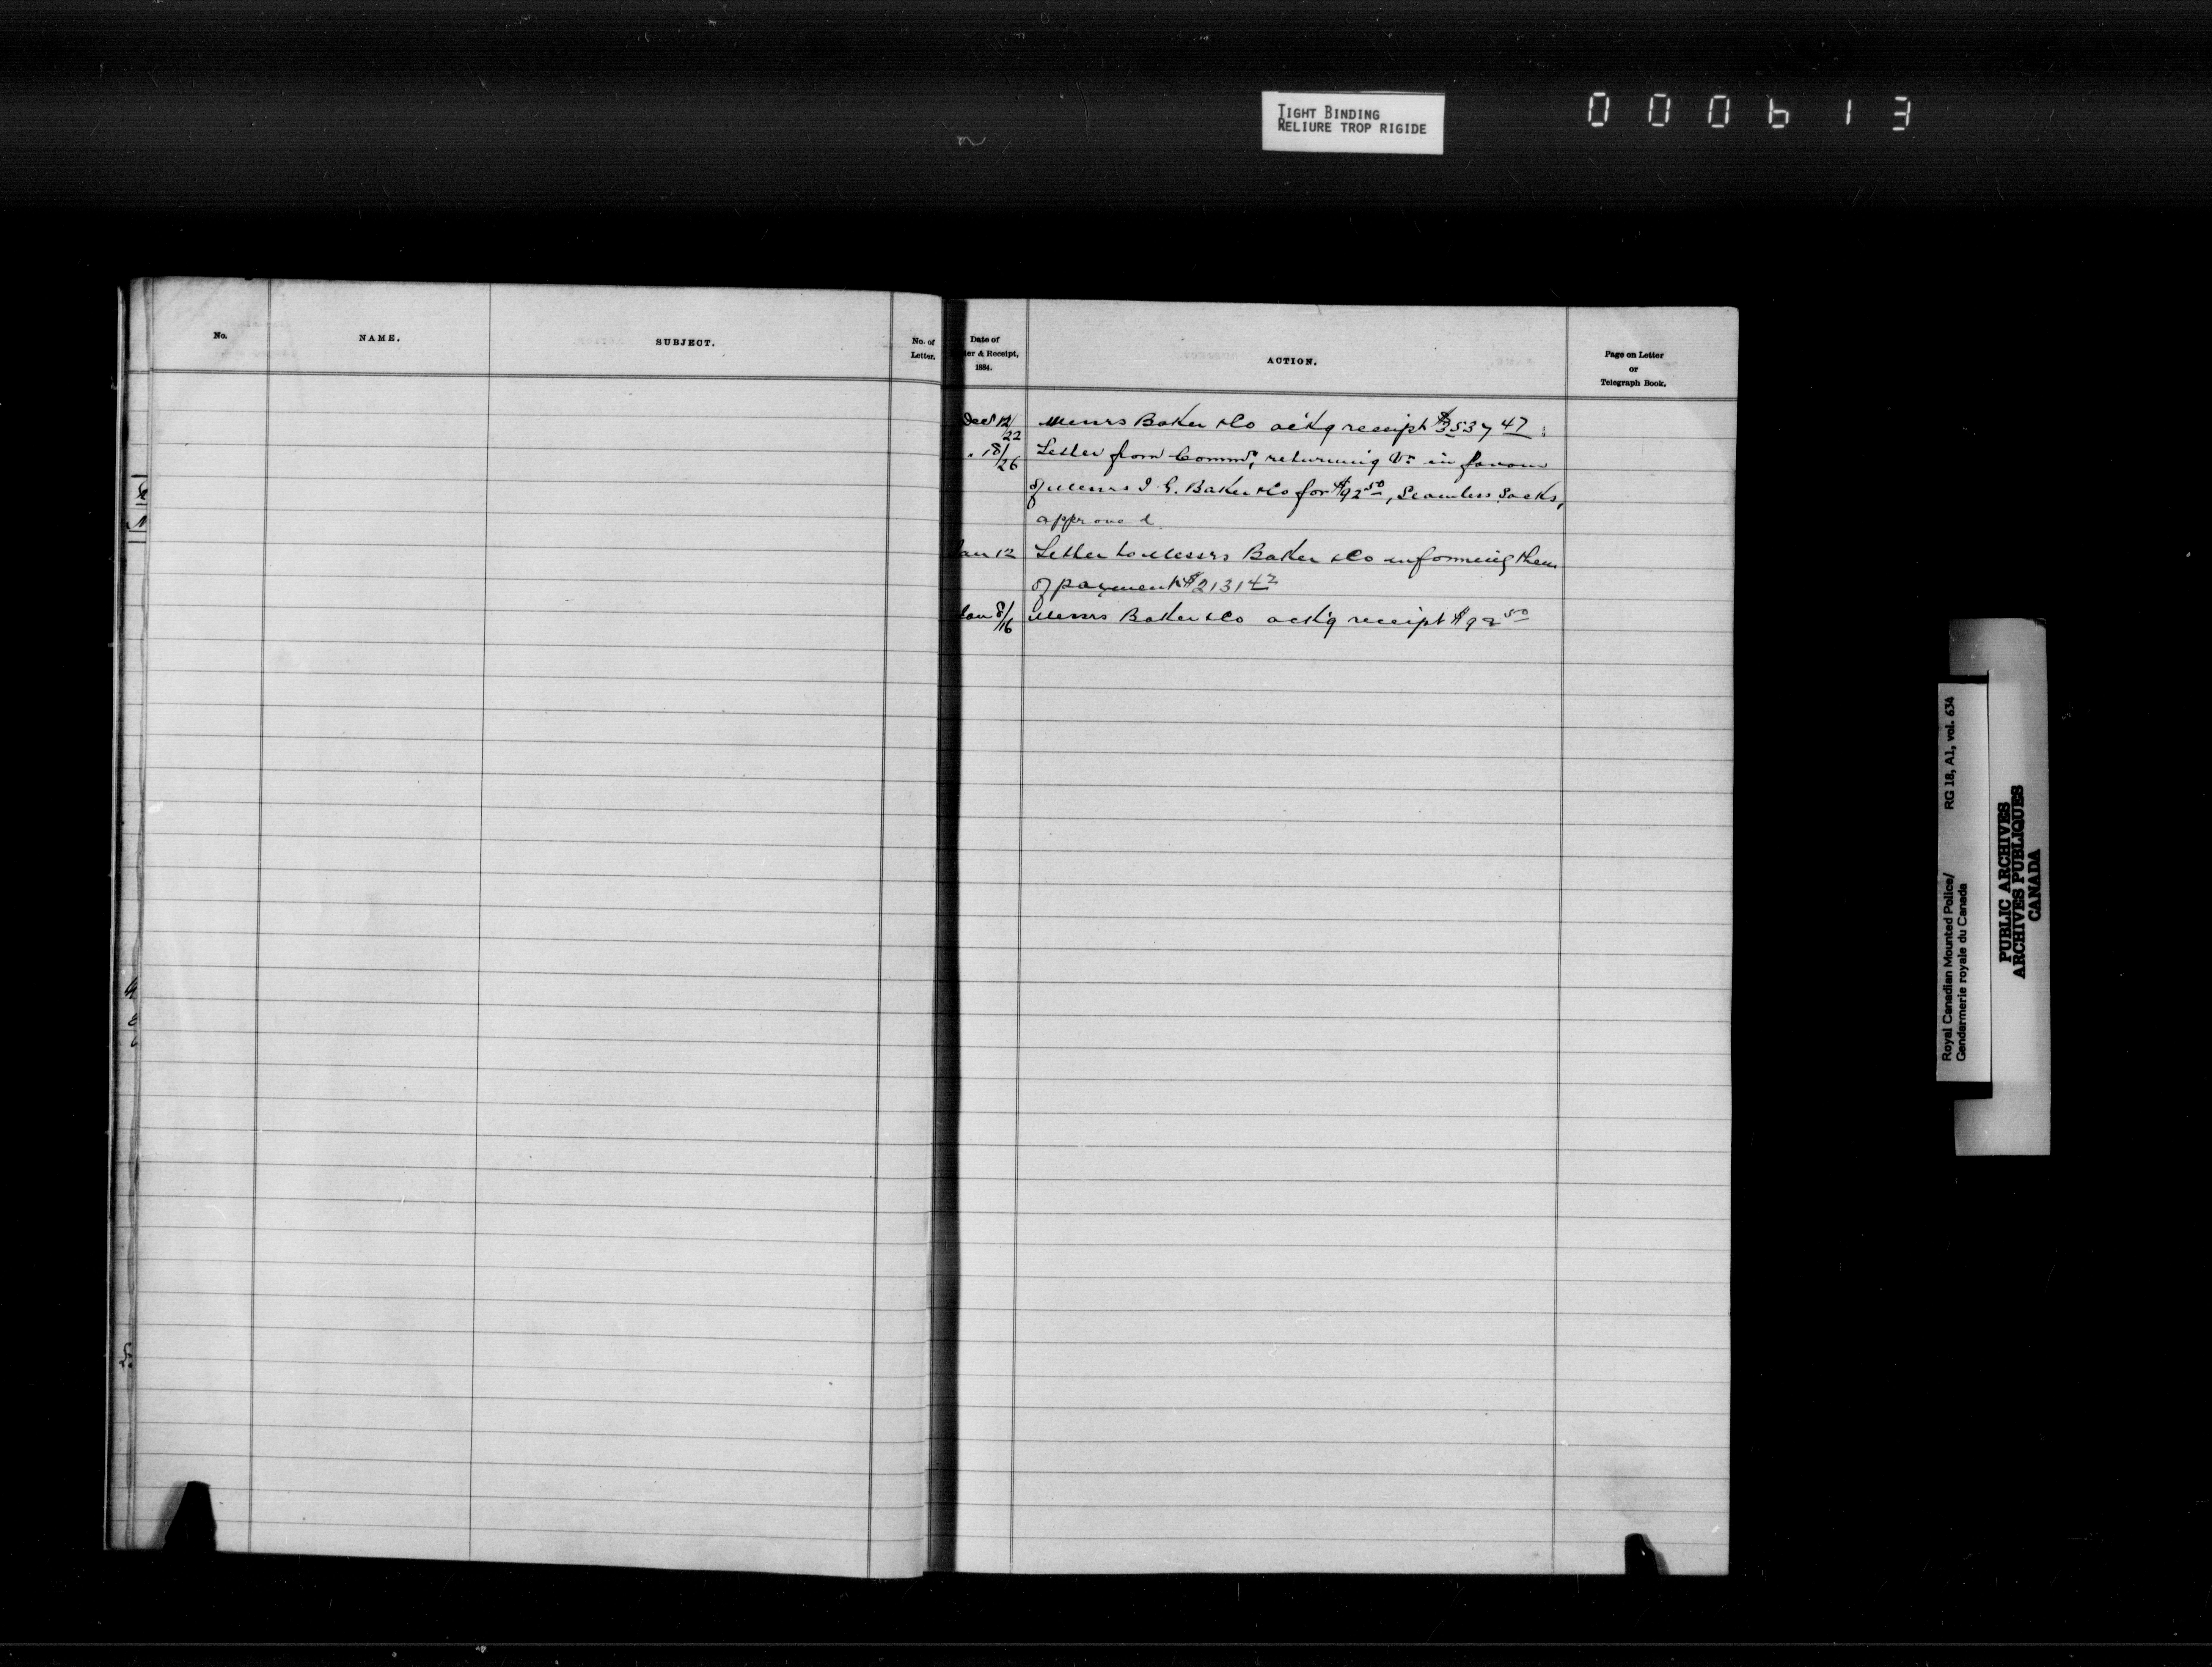 TIGHT BINDING
RELIURE TROP RIGIDE
000613
No. NAME. SUBJECT. No. of Letter.
Date of
ter & Receipt,
1884.
ACTION.
Page on Letter
or
Telegraph Book.
Dec 12/22 Messrs Baker &Co ack'g receipt $3537 47
" 18/26 Letter from Commr, returning Vr in favour
of Messrs I. G. Baker &Co for $92 50, Seamless Sacks,
approved
Jan 12 Letter to Messrs Baker &Co informing them
of payment $2131 47
Jan 8/16 Messrs Baker &Co ack'g receipt $92 50
Royal Canadian Mounted Police/ RG 18, A1, vol. 634
Gendarmerie royale du Canada
PUBLIC ARCHIVES
ARCHIVES PUBLIQUES
CANADA